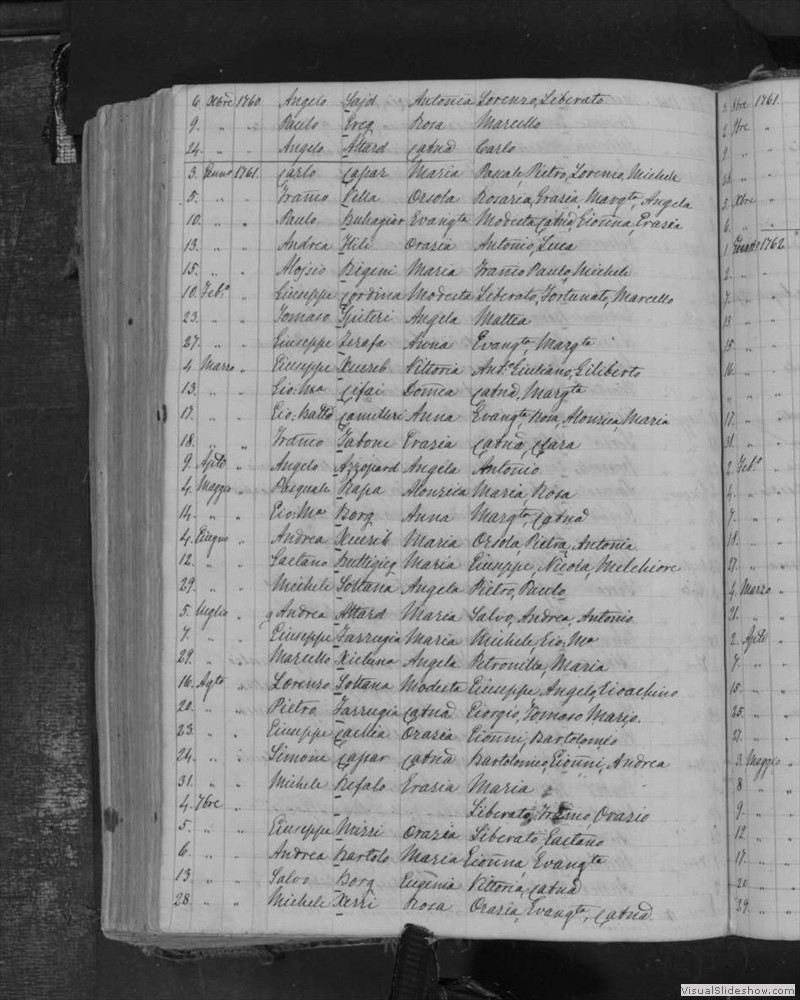 6. Xbre 1760. Angelo Sajd Antonia Lorenzo, Liberato
9. " " Paulo Ereq Rosa Marcello
24. " " Angelo Attard Catnā Carlo
3. Genno 1761. Carlo Capar Maria Pietro, Lorenzo, Michele
5. " " Framo Vella Orsola Rosaria, Grazia, Margta, Angela
10. " " Paulo Buhagiar Evangta Modesta, Catnā, Gionna, Grazia
13. " " Andrea Hili Orazia Antonio, Luca
15. " " Aloisio Bigeni Maria Framo Paulo, Michele
10. Feb.o " Giuseppe Cordina Modesta Liberato, Fortunat, Marcello
23. " " Tomaso Spiteri Angela Mattea
27. " " Giuseppe Zerafa Anna Evangta, Margta
4. Marzo " Giuseppe Xuereb Vittoria Ant.o Giuliano, Giliberto
13. " " Gio: Ma Cifai Domca Catnā, Margta
17. " " Gio: Batta Camilleri Anna Evangta, Rosa, Alonzica, Maria
18. " " Framo Tabone Grazia Catnā, Clara
9. Aple " Angelo Azzopard Angela Antonio
4. Maggio " Pasquale Rapa Alonzica Maria, Rosa
14. " " Gio: Ma Borg Anna Margta, Catnā
4. Giugno " Andrea Xuereb Maria Orsola, Pietra, Antonia
12. " " Gaetano Buttigieg Maria Giuseppe, Nicola, Melchiore
29. " " Michele Soltana Angela Pietro, Paulo
5. Luglio " Andrea Attard Maria Salvo, Andrea, Antonio
7. " " Giuseppe Farrugia Maria Michele, Gio: Ma
29. " " Marcello Xicluna Angela Petronilla, Maria
16. Agto " Lorenzo Soltana Modesta Giuseppe, Angelo, Gioachino
20. " " Pietro Farrugia Catnā Giorgio, Tomaso Mario.
23. " " Giuseppe Orazia Gionni, Bartolomeo
24. " " Simone Capar Catnā Bartolomeo, Gionni, Andrea
31. " " Michele Refalo Grazia Maria
4. 7bre " Liberato, Framo, Orazio
5. " " Giuseppe Mizzi Orazia Liberato, Gaetano
6. " " Andrea Bartolo Maria Gionna, Evangta
13. " " Salvo Borg Eugenia Vittoria, Catnā
28. " " Michele Xerri Rosa Orazia, Evangta, Catnā.
8bre 1761.
2. 9bre "
9. "
5. Xbre "
6. "
1. Genno 1762.
2. "
7. "
13 "
15. "
16. "
" "
17. "
31. "
2. Feb.o "
4. "
7. "
18. "
27. "
4. Marzo "
21. "
2. Aple "
7. "
15. "
25. "
27. "
3. Maggio "
8 "
9. "
12 "
17. "
20 "
29. "
VisualSlideshow.com